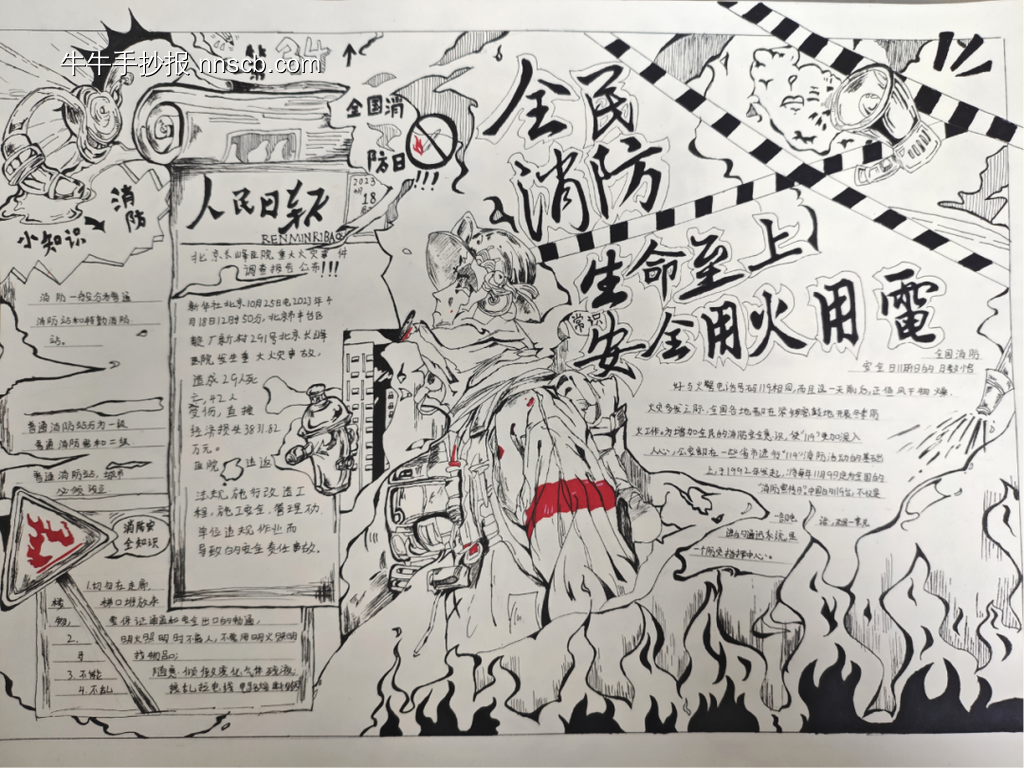 牛牛手抄报 nnscb.com
全国消
防日
!!!
消防
小知识
人民日報
RENMINRIBAO
2023
18
北京长峰医院重大火灾事件
调查报告公布!!!
新华社北京10月25日电2023年4
月18日12时50分,北京市丰台区
靛厂新村291号北京长峰
医院发生重大火灾事故,
造成29人死
亡,42人
受伤,直接
经济损失3831.82
万元。
医院违法违返
法规施行改造工
程,施工安全管理功
单位违规作业而
导致的安全责任事故。
消防一般分为普通
消防站和特勤消防
站。
普通消防站分为一级
普通消防站和二级
普通消防站,城市
必须设立
消防安
全知识
1.切勿在走廊、
楼梯口堆放杂
物,要保证通道和安全出口的畅通,
3.不能随意倾倒液化气体残液
4.不乱接乱拉电线
全民
消防
生命至上
常识
安全用火用電
全国消防
安全日11月9日的月数小嗯
好与火警电话号码119相同,而且这一天前后,正值风干物燥、
火灾多发之际,全国各地都在紧锣密鼓地开展冬季防
火工作。为增加全民的消防安全意识,使“119”更加深入
人心,公安部在一些省市进行“119”消防活动的基础
上,于1992年发起,将每年11月9日定为全国的
“消防宣传日”。中国的119台,不仅是
一部电话,还是一套先
进的通迅系统,是
一个防灾指挥中心。